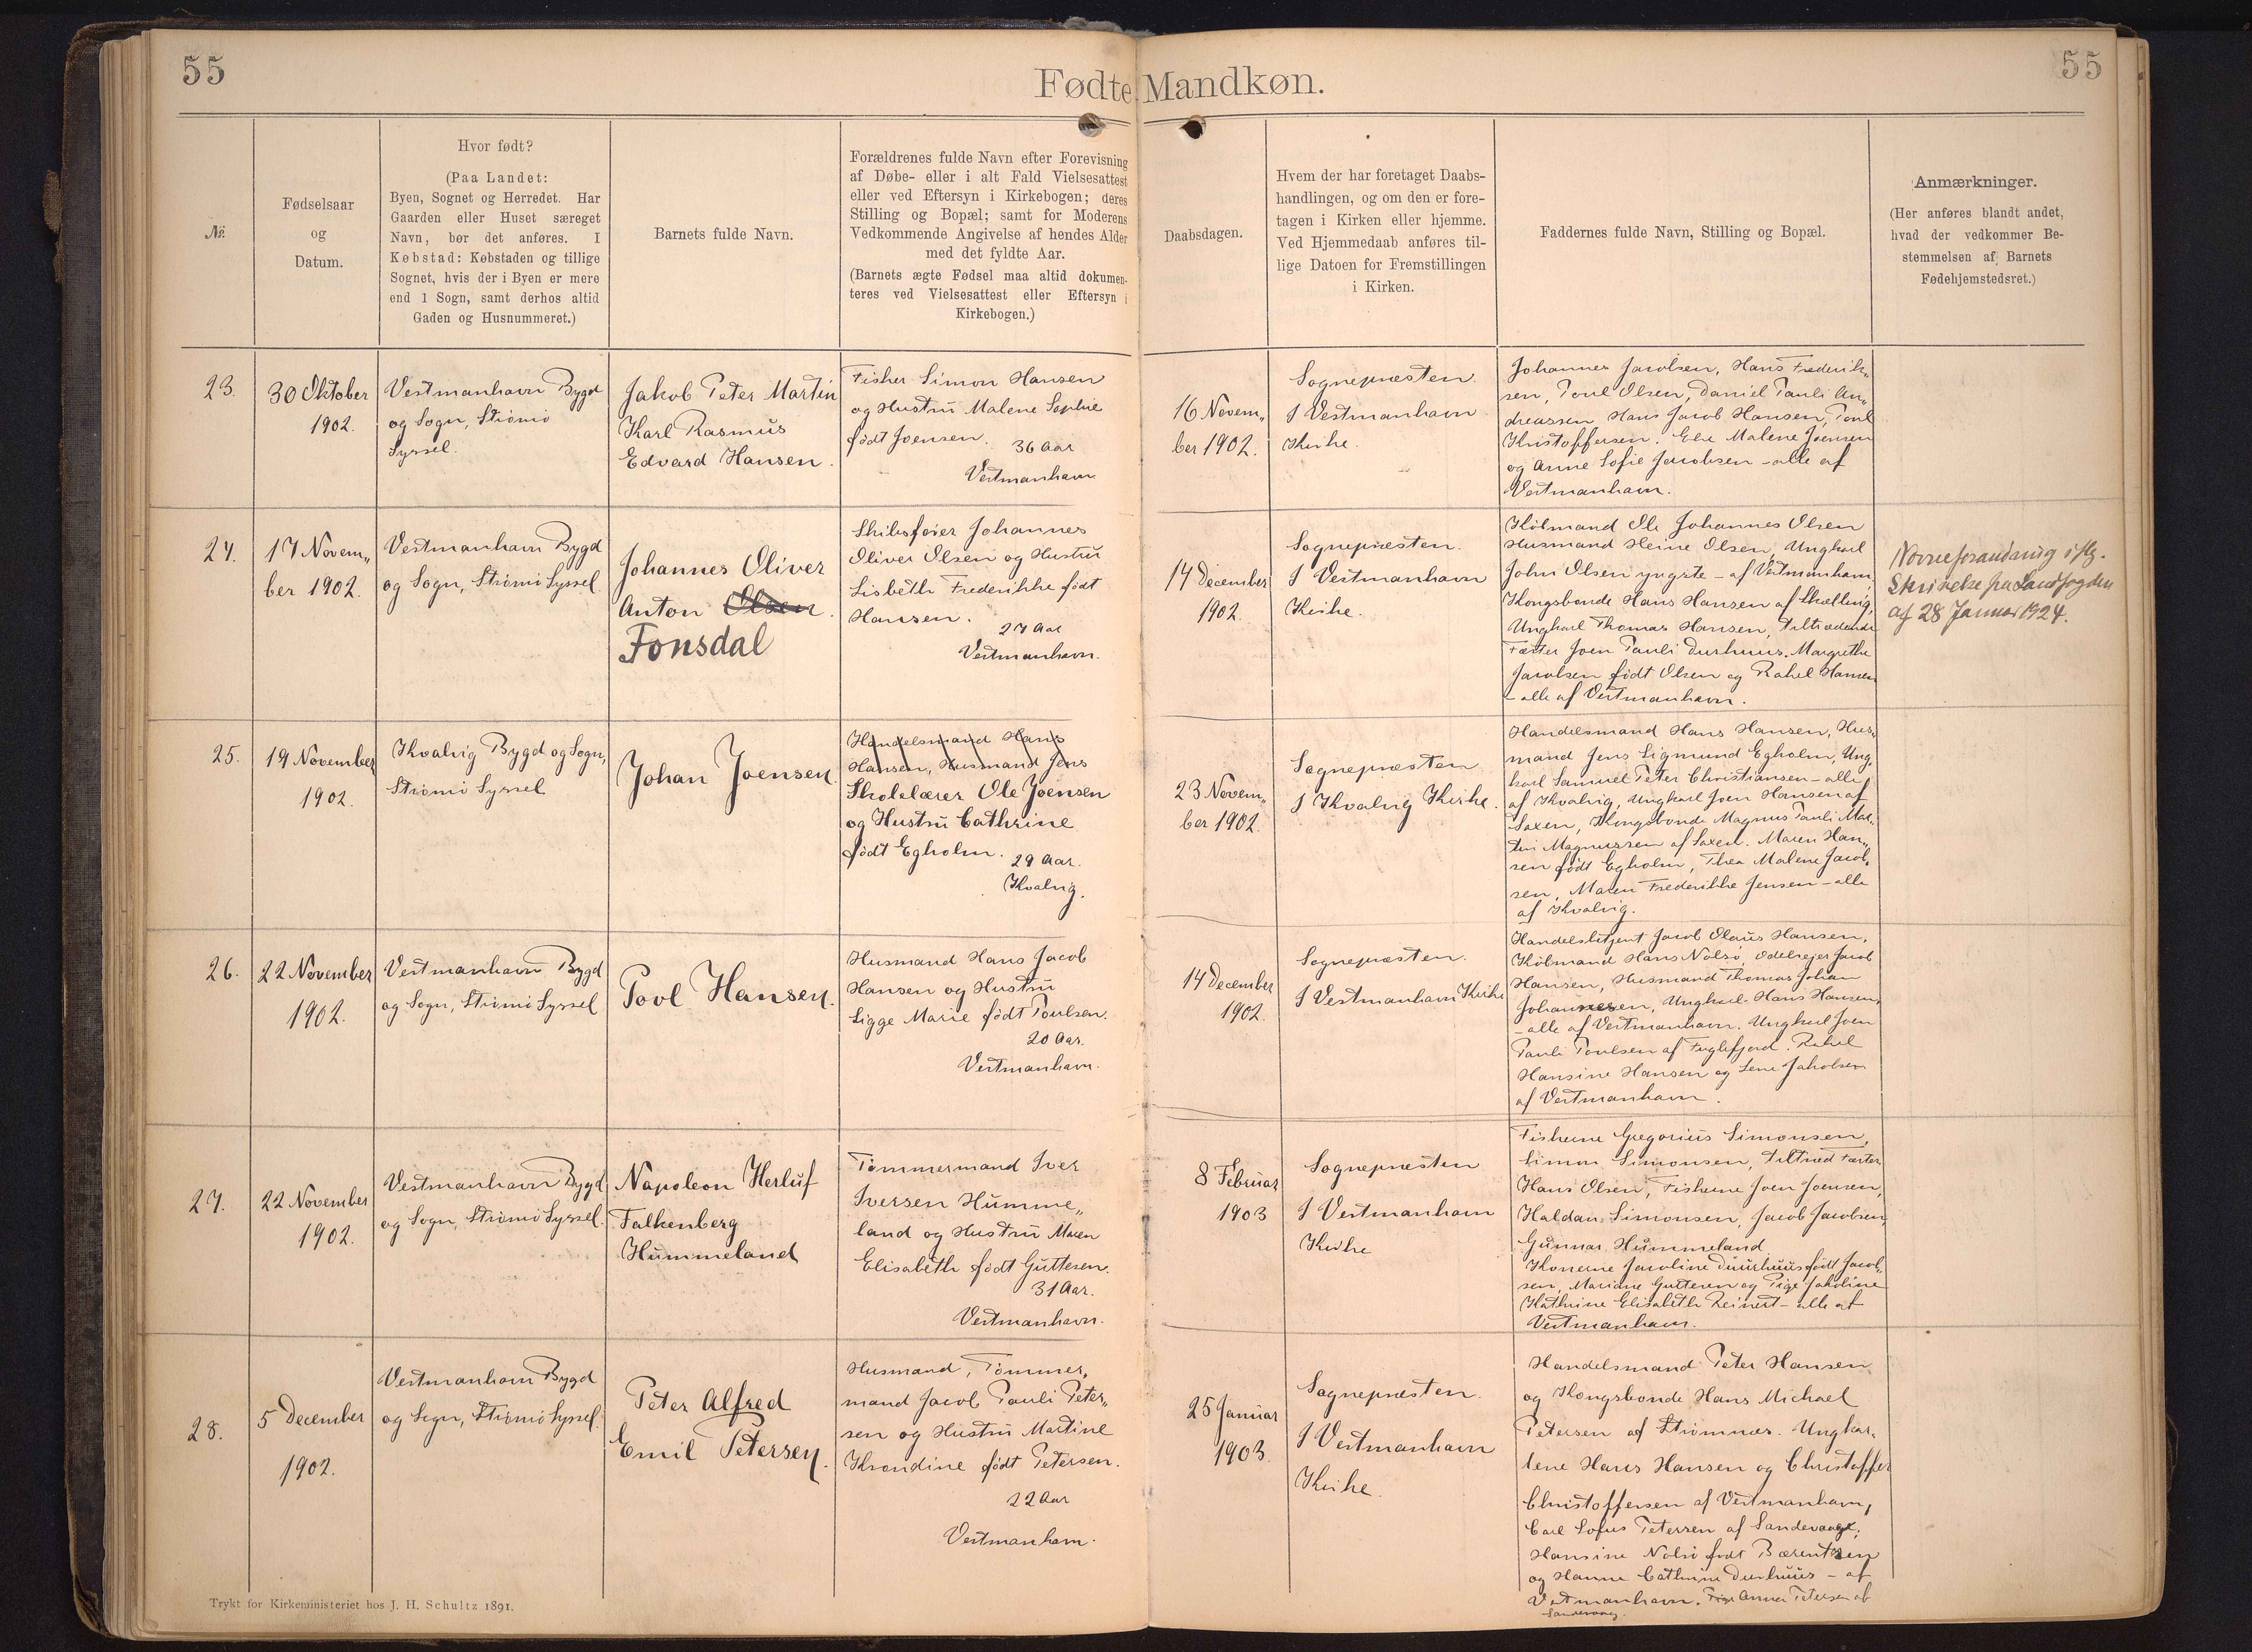 55
Fødte Mandkøn.
55
№
Fødselsaar
og
Datum.
Hvor født?
(Paa Landet:
Byen, Sognet og Herredet. Har
Gaarden eller Huset særeget
Navn, bør det anføres. I
Købstad: Købstaden og tillige
Sognet, hvis der i Byen er mere
end 1 Sogn, samt derhos altid
Gaden og Husnummeret.)
Barnets fulde Navn.
Forældrenes fulde Navn efter Forevisning
af Døbe- eller i alt Fald Vielsesattest
eller ved Eftersyn i Kirkebogen; deres
Stilling og Bopæl; samt for Moderens
Vedkommende Angivelse af hendes Alder
med det fyldte Aar.
(Barnets ægte Fødsel maa altid dokumen-
teres ved Vielsesattest eller Eftersyn i
Kirkebogen.)
Daabsdagen.
Hvem der har foretaget Daabs-
handlingen, og om den er fore-
tagen i Kirken eller hjemme.
Ved Hjemmedaab anføres til-
lige Datoen for Fremstillingen
i Kirken.
Faddernes fulde Navn, Stilling og Bopæl.
Anmærkninger.
(Her anføres blandt andet,
hvad der vedkommer Be-
stemmelsen af Barnets
Fødehjemstedsret.)
23.
30 Oktober
1902.
Vestmanhavn Bygd
og Sogn, Strømø
Syssel.
Jakob Peter Martin
Karl Rasmus
Edvard Hansen.
Fisker Simon Hansen
og Hustru Malene Sophie
født Joensen.
36 Aar
Vestmanhavn
16 Novem„
ber 1902.
Sognepræsten.
I Vestmanhavn
Kirke.
Johannes Jacobsen, Hans Frederik„
sen, Poul Olsen, Daniel Pauli An„
dreassen, Hans Jacob Hansen, Poul
Kristoffersen. Else Malene Joensen
og Anne Sofie Jacobsen - alle af
Vestmanhavn.
24.
17 Novem„
ber 1902.
Vestmanhavn Bygd
og Sogn, Strømø Syssel
Johannes Oliver
Anton Olsen.
Fonsdal
Skibsfører Johannes
Oliver Olsen og Hustru
Lisbeth Frederikke født
Hansen.
27 Aar
Vestmanhavn.
14 December
1902.
Sognepræsten.
I Vestmanhavn
Kirke.
Købmand Ole Johannes Olsen
Husmand Heine Olsen, Ungkarl
John Olsen yngste - af Vestmanhavn,
Kongsbonde Hans Hansen af Skælling,
Ungkarl Thomas Hansen, Tiltrædende
Fæster Joen Pauli Durhuus. Margrethe
Jacobsen født Olsen og Rakel Hansen
- alle af Vestmanhavn.
Navneforandring iflg.
Skrivelse fra Landfogden
af 28 Januar 1924.
25.
19 November
1902.
Kvalvig Bygd og Sogn,
Strømø Syssel
Johan Joensen
Handelsmand Hans
Hansen, Husmand Jens
Skolelærer Ole Joensen
og Hustru Cathrine
født Egholm.
29 Aar.
Kvalvig.
23 Novem„
ber 1902.
Sognepræsten
I Kvalvig Kirke.
Handelsmand Hans Hansen, Hus„
mand Jens Sigmund Egholm, Ung„
karl Samuel Peter Christiansen - alle
af Kvalvig, Ungkarl Joen Hansen af
Saxen, Kongsbonde Magnus Pauli Mar„
tin Magnussen af Saxen. Maren Han„
sen født Egholm, Thea Malene Jacob„
sen, Maren Frederikke Jensen - alle
af Kvalvig.
26.
22 November
1902.
Vestmanhavn Bygd
og Sogn, Strømø Syssel
Povl Hansen.
Husmand Hans Jacob
Hansen og Hustru
Sigge Marie født Poulsen.
20 Aar.
Vestmanhavn.
14 December
1902.
Sognepræsten.
I Vestmanhavn Kirke
Handelsbetjent Jacob Olaus Hansen,
Købmand Hans Nolsø, Odelsejer Jacob
Hansen, Husmand Thomas Johan
Johannesen, Ungkarl Hans Hansen,
- alle af Vestmanhavn. Ungkarl Joen
Pauli Poulsen af Fuglefjord. Rakel
Hansine Hansen og Lene Jakobsen
af Vestmanhavn.
27.
22 November
1902.
Vestmanhavn Bygd
og Sogn, Strømø Syssel.
Napoleon Herluf
Falkenberg
Hummeland
Tømmermand Iver
Iversen Humme„
land og Hustru Maren
Elisabeth født Guttesen.
31 Aar.
Vestmanhavn.
8 Februar
1903
Sognepræsten
I Vestmanhavn
Kirke
Fiskerne Gregorius Simonsen,
Simon Simonsen, Tiltræd Fæster
Hans Olsen, Fiskerne Joen Joensen,
Haldan Simonsen, Jacob Jacobsen,
Gunnar Hummeland
Konerne Jacoline Duurhuus født Jacob„
sen, Mariane Guttesen og Pige Jakoline
Kathrine Elisabeth Reinert - alle af
Vestmanhavn.
28.
5 December
1902.
Vestmanhavn Bygd
og Sogn, Strømø Syssel.
Peter Alfred
Emil Petersen.
Husmand, Tømmer„
mand Jacob Pauli Peter„
sen og Hustru Martine
Krondine født Petersen.
22 Aar
Vestmanhavn.
25 Januar
1903.
Sognepræsten.
I Vestmanhavn
Kirke.
Handelsmand Peter Hansen
og Kongsbonde Hans Michael
Petersen af Strømnæs. Ungkar„
lene Hans Hansen og Christoffer
Christoffersen af Vestmanhavn,
Carl Sofus Petersen af Sandevaag,
Hansine Nolsø født Bærentsen
og Hanne Cathrine Durhuus - af
Vestmanhavn. Pige Anna Petersen af
Sandevaag.
Trykt for Kirkeministeriet hos J. H. Schultz 1891.